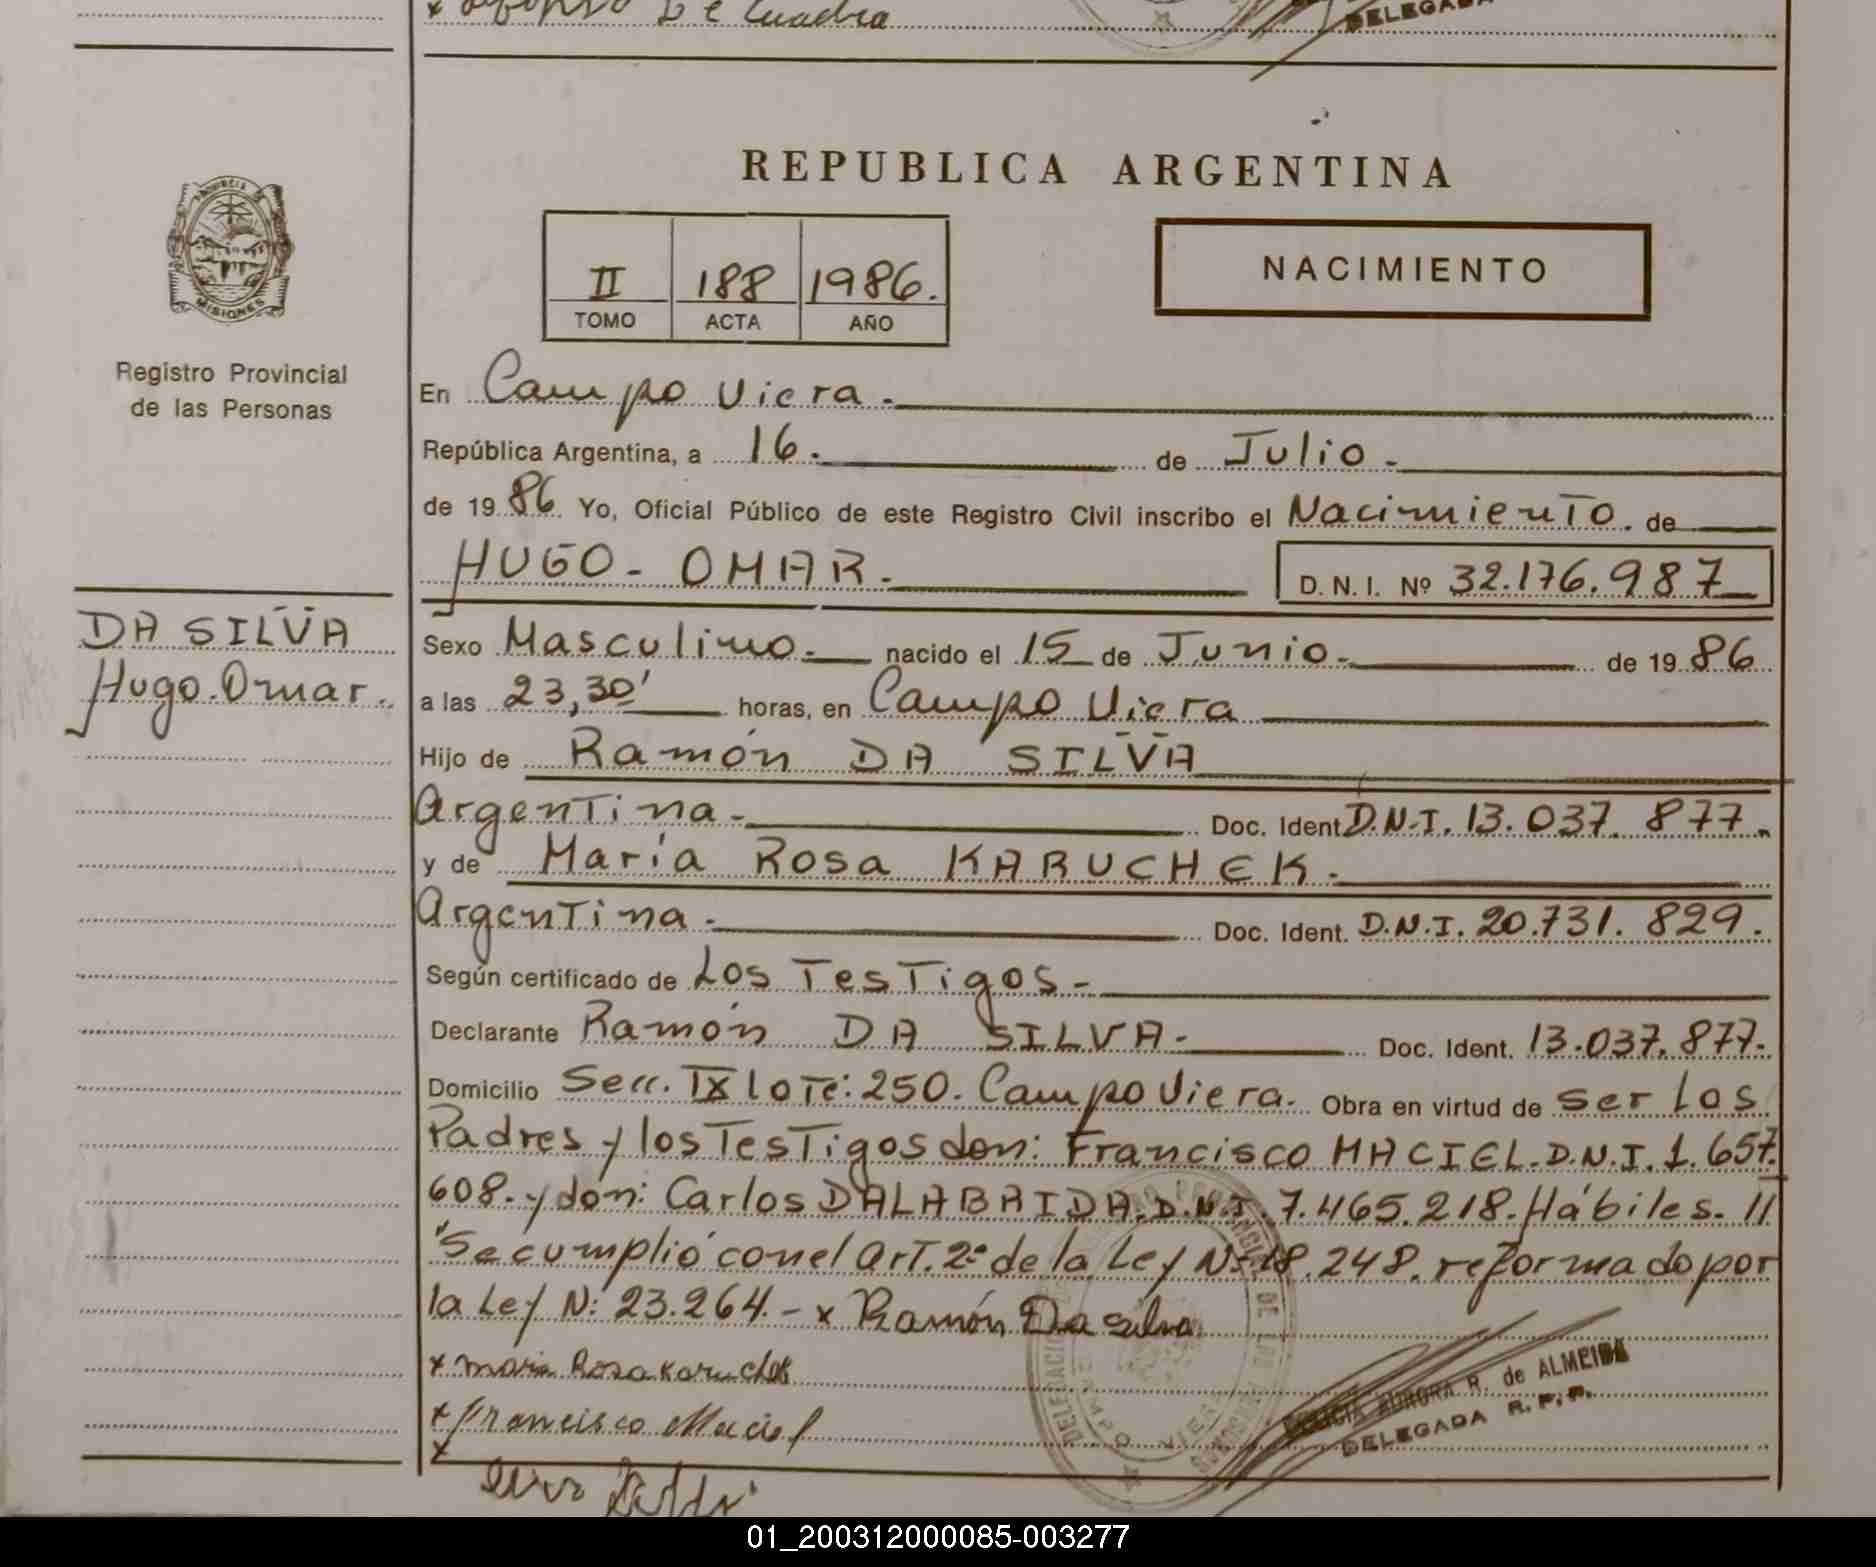 x Alfonso De Cuadra
DELEGADA
REPUBLICA ARGENTINA
II 188 1986.
TOMO ACTA AÑO
NACIMIENTO
PROVINCIA
MISIONES
Registro Provincial
de las Personas
En Campo Viera.
República Argentina, a 16. de Julio.
de 1986 Yo, Oficial Público de este Registro Civil inscribo el Nacimiento. de
HUGO- OMAR. D. N. I. Nº 32.176.987
DA SILVA
Hugo.Omar.
Sexo Masculino. nacido el 15 de Junio. de 1986
a las 23,30' horas, en Campo Viera
Hijo de Ramón DA SILVA
Argentina. Doc. Ident. D.N.I. 13.037.877.
y de María Rosa KARUCHEK.
Argentina. Doc. Ident. D.N.I. 20.731.829.
Según certificado de Los Testigos-
Declarante Ramón DA SILVA. Doc. Ident. 13.037.877.
Domicilio Secc. IX lote: 250. Campo Viera. Obra en virtud de ser los
Padres y los Testigos don: Francisco MACIEL. D.N.I. 1.657.
608. y don: Carlos DALABRIDA. D.N.I. 7.465.218. Hábiles. //
"Se cumplió con el Art. 2º de la Ley Nº 18.248. reformado por
la Ley N: 23.264.- x Ramón Da Silva
x maria Rosa Karuchek
x Francisco Maciel
x
R. de ALMEIDA
DELEGADA R. P. P.
01_200312000085-003277